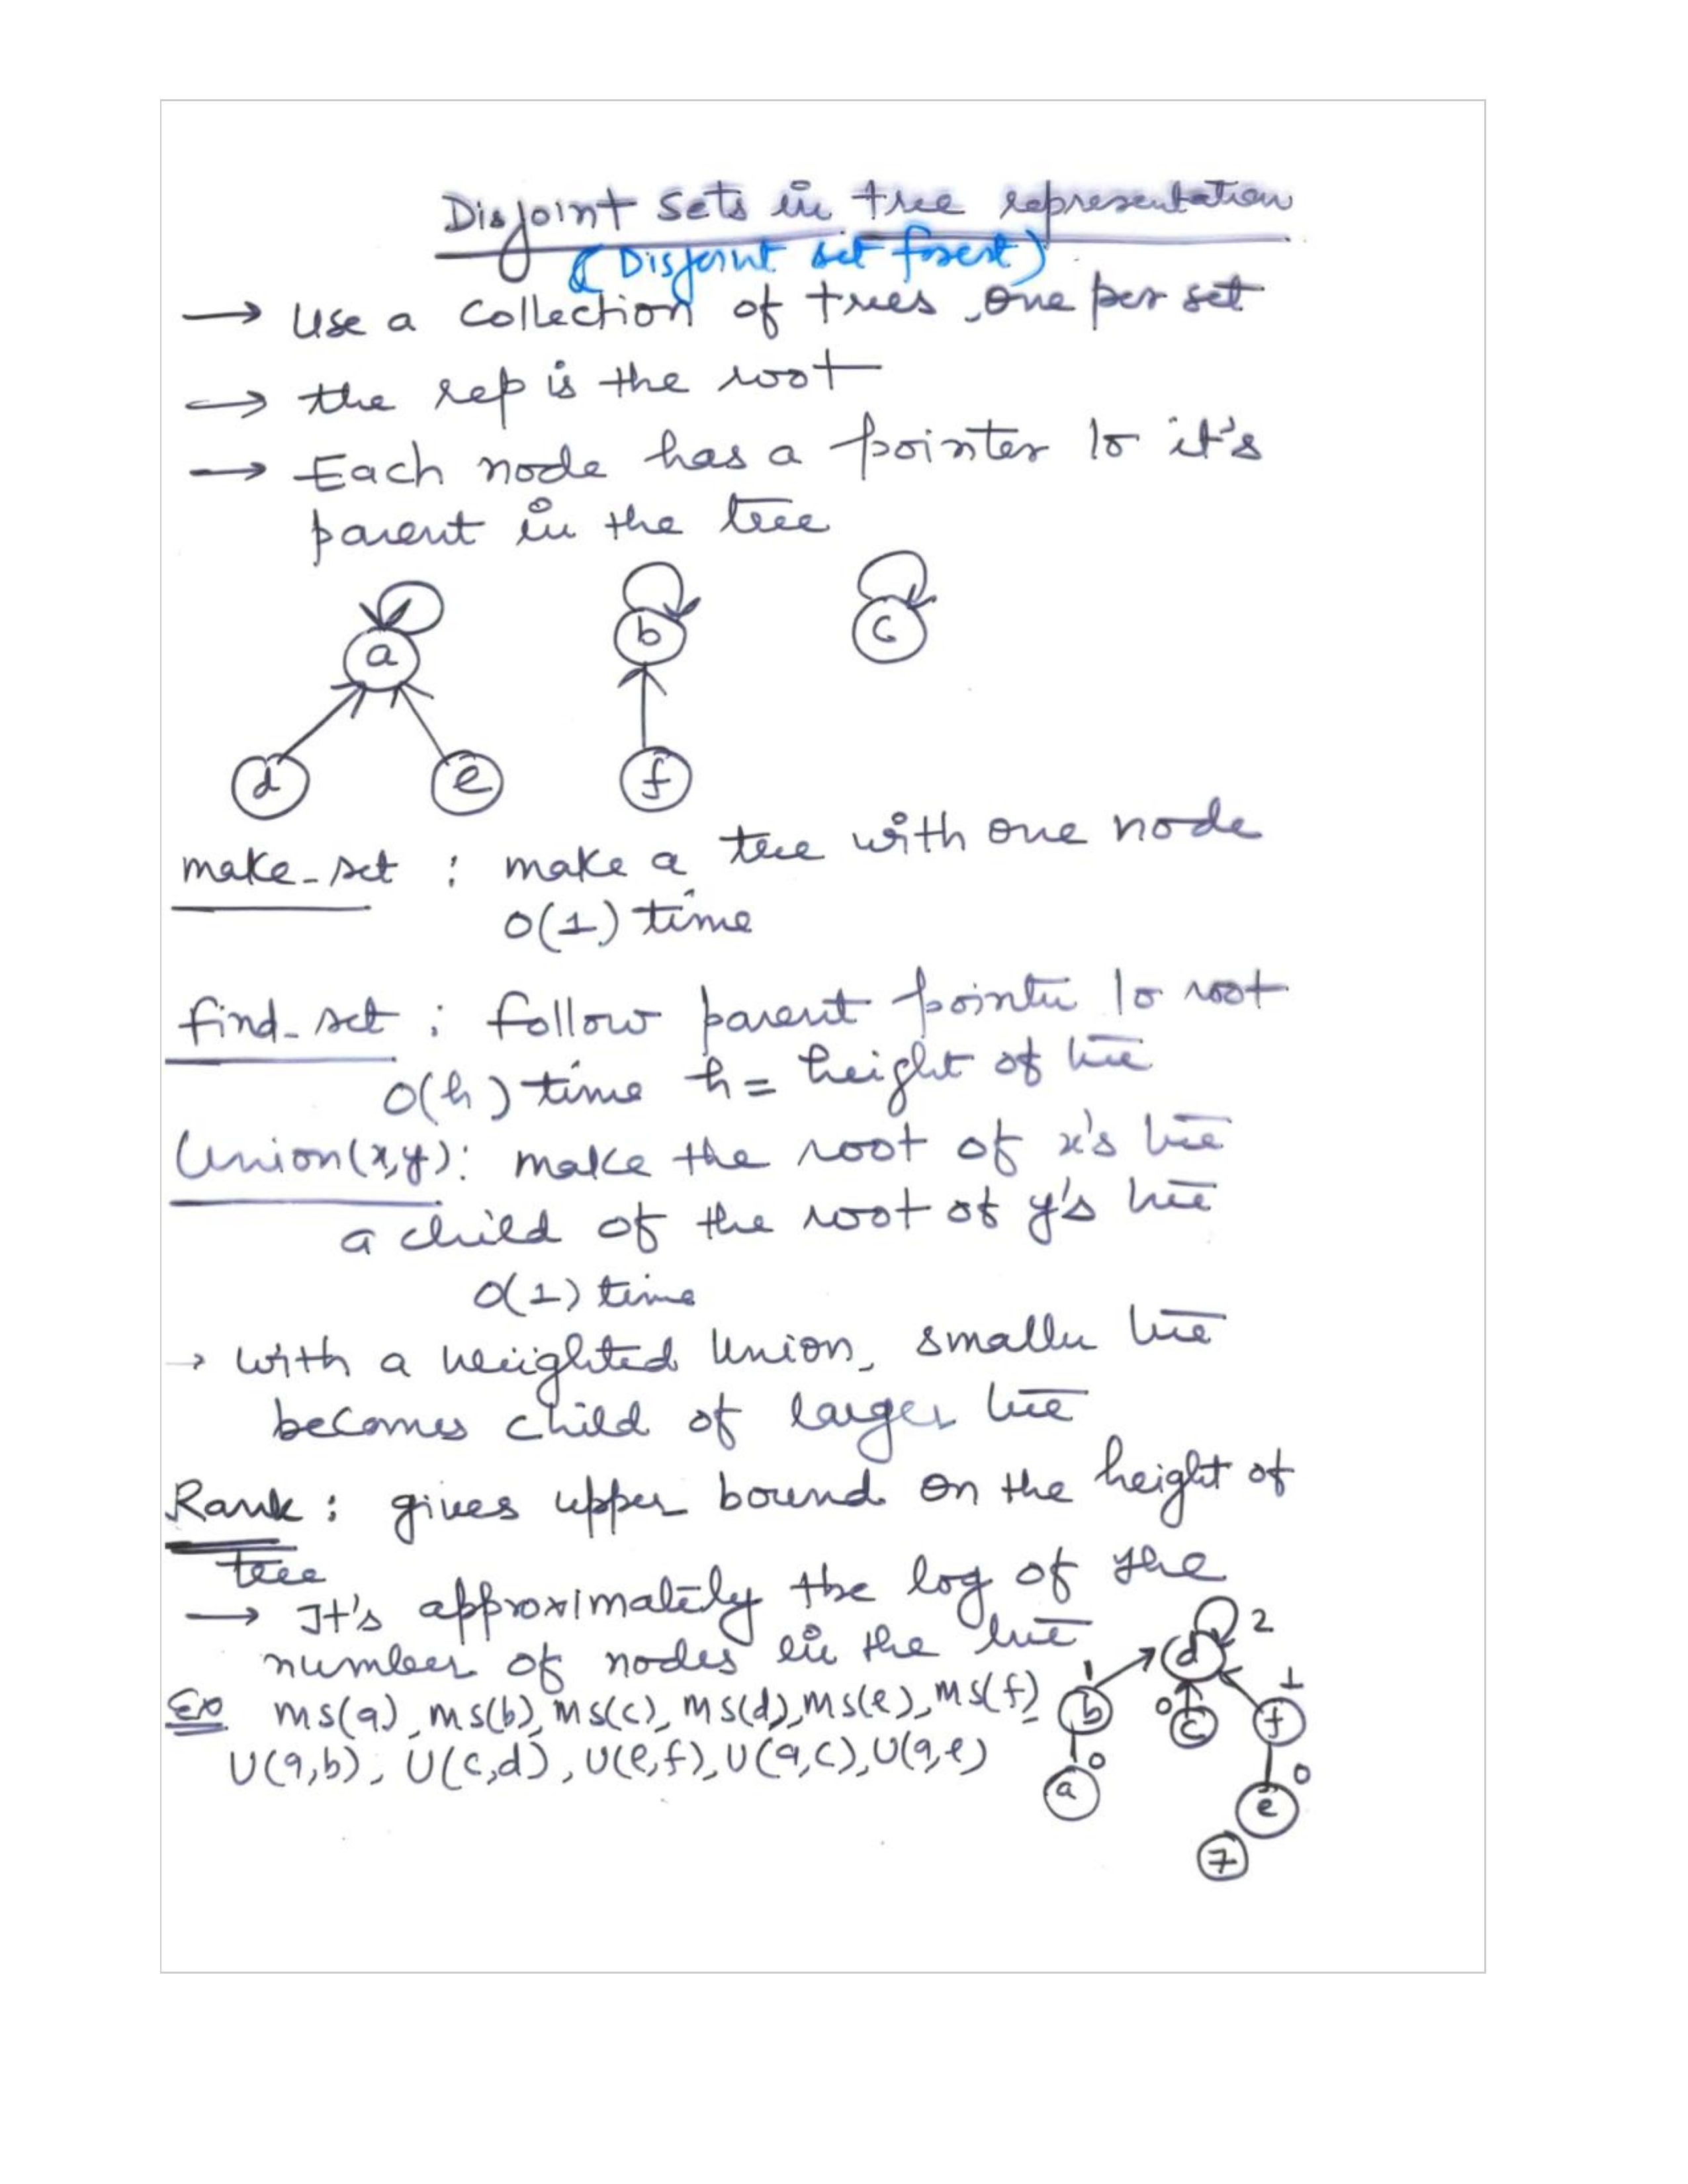 Disjoint sets in tree representation
(Disjoint set forest)
→ Use a collection of trees, one per set
→ the rep is the root
→ Each node has a pointer to it's
parent in the tree
a b c
d e f
make_set : make a tree with one node
O(1) time
find_set : follow parent pointer to root
O(h) time h = height of tree
Union(x,y): make the root of x's tree
a child of the root of y's tree
O(1) time
→ with a weighted Union, smaller tree
becomes child of larger tree
Rank : gives upper bound on the height of
tree
→ It's approximately the log of the
number of nodes in the tree
Ex MS(a), MS(b), MS(c), MS(d), MS(e), MS(f)
U(a,b), U(c,d), U(e,f), U(a,c), U(a,e)
d 2
1 b 0 c f 1
a 0 e 0
7